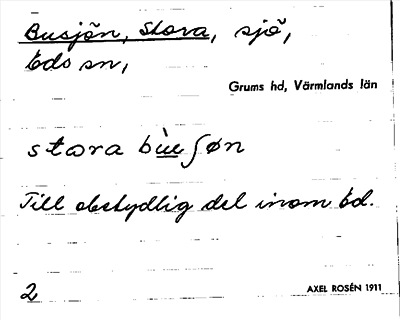 Busjön, Stora, sjö,
Eds sn,
Grums hd, Värmlands län
stora bùeʃøn
Till obetydlig del inom Ed.
2
AXEL ROSÉN 1911